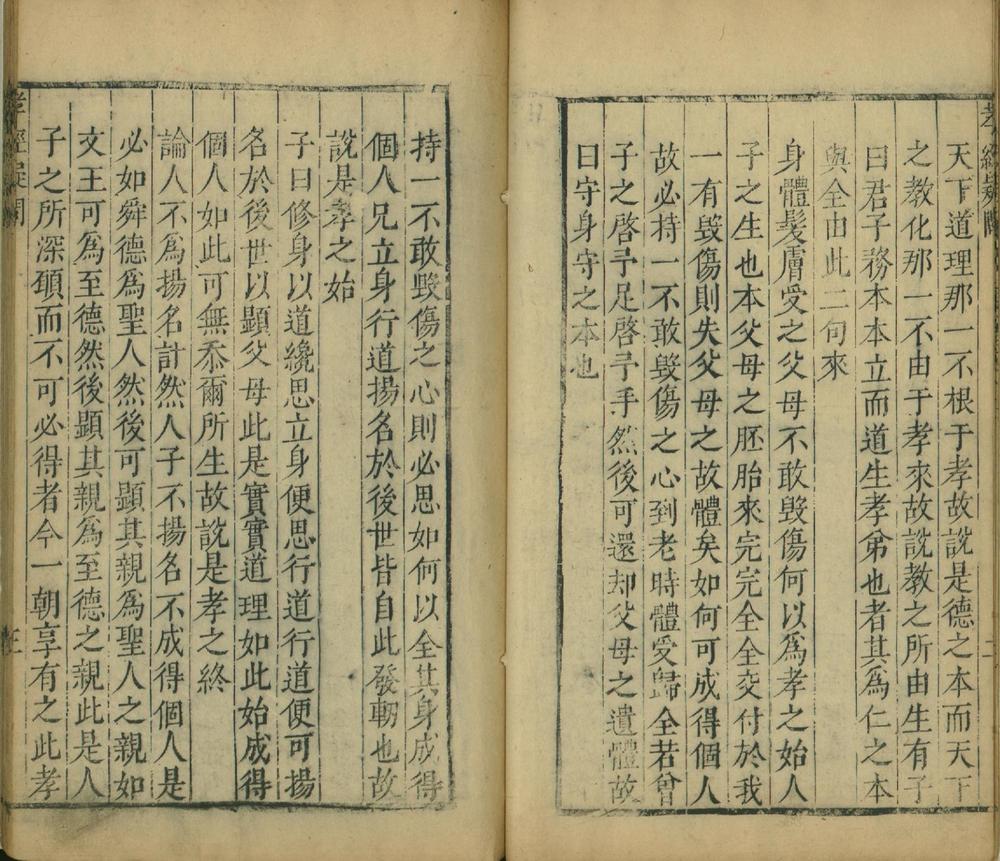 天下道理那一不根于孝故說是德之本而天下
之教化那一不由于孝來故說教之所由生有子
曰君子務本本立而道生孝弟也者其爲仁之本
與全由此二句來
身體髮膚受之父母不敢毀傷何以爲孝之始人
子之生也本父母之胚胎來完完全全交付於我
一有毀傷則失父母之故體矣如何可成得個人
故必持一不敢毀傷之心到老時體受歸全若曾
子之啓予足啓予手然後可還却父母之遺體故
曰守身守之本也
二
持一不敢毀傷之心則必思如何以全其身成得
個人兄立身行道揚名於後世皆自此發軔也故
說是孝之始
子曰修身以道纔思立身便思行道行道便可揚
名於後世以顯父母此是實實道理如此始成得
個人如此可無忝爾所生故說是孝之終
論人不爲揚名計然人子不揚名不成得個人是
必如舜德爲聖人然後可顯其親爲聖人之親如
文王可爲至德然後顯其親爲至德之親此是人
子之所深願而不可必得者今一朝享有之此孝